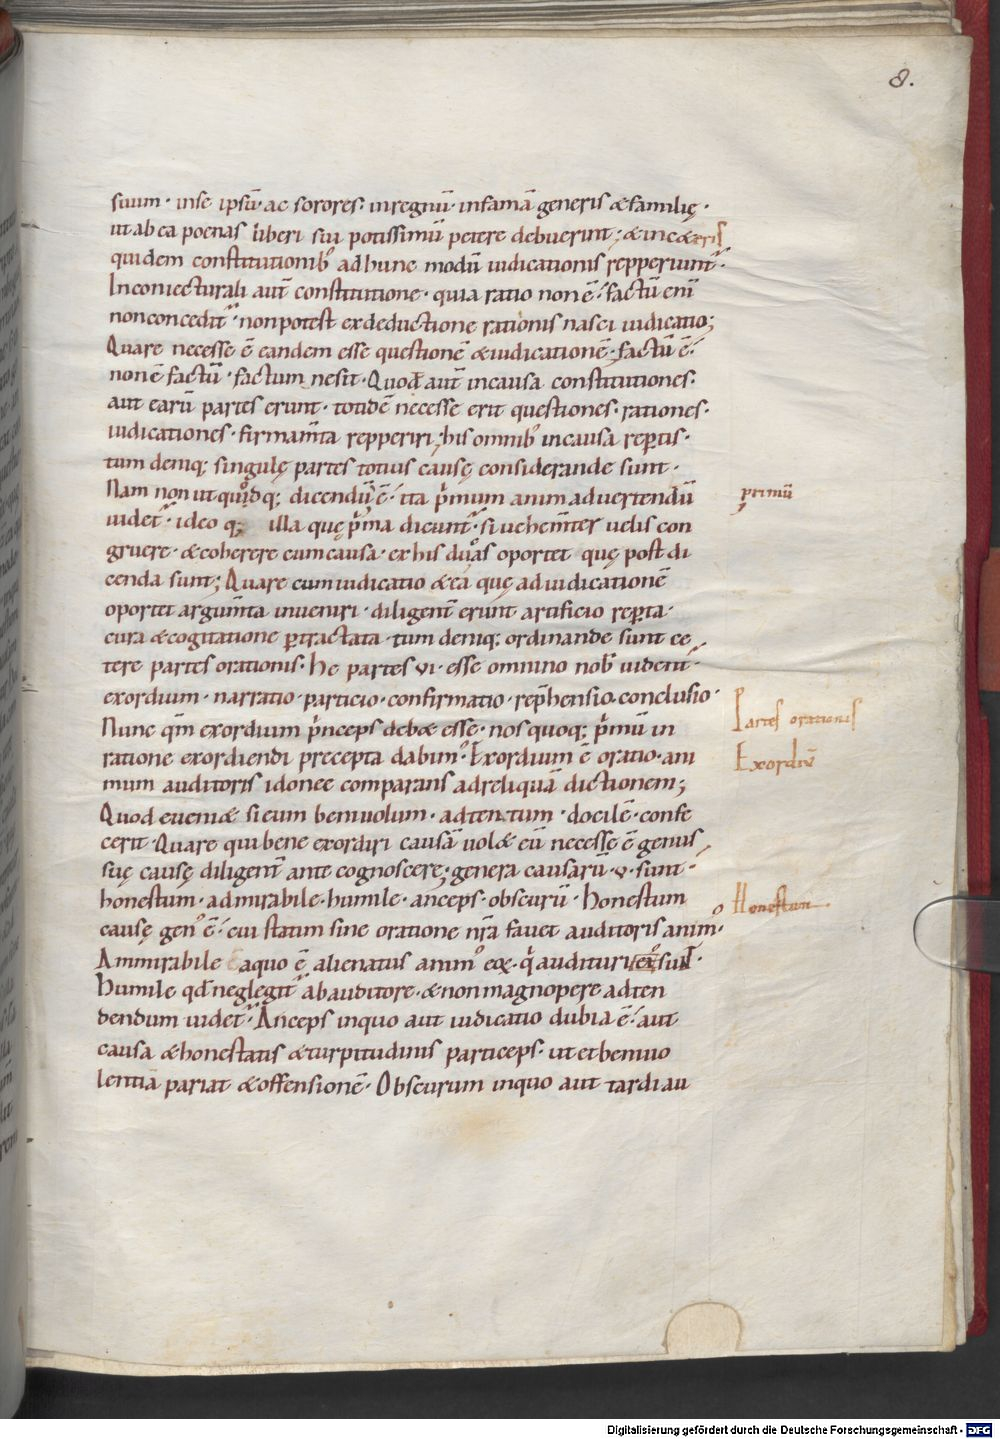 8.
suum · inse ipsū · ac sorores · inregnū · infamā generis &familię ·
ut ab ea poenas liberi sui potissimū petere debuerint ; &inc&eris
quidem constitutionibꝰ adhunc modū iudicationis repperiunt᷑ ·
Inconiecturali aut̄ constitutione · quia ratio non ē · factū enī
nonconcedit᷑ · nonpotest exdeductione rationis nasci iudicatio;
Quare necesse ē eandem esse questionē &iudicationē · factū ē ·
non ē factū · factum nesit · Quod aut̄ incausa constitutiones ·
aut earū partes erunt · totidē necesse erit questiones · rationes ·
iudicationes · firmam̄ta repperiri ; his omnibꝰ incausa rep̄tis ·
tum deniq; singulę partes totius causę considerande sunt ·
Nam non ut quidq; dicendū ē · ita p̄mum animaduertendū
primū
uidet᷑ · ideo q; illa quę p̄ma dicunt᷑ · si uehem̄ter uelis con
gruere · &coherere cumcausa · ex his duas oportet quę post di
cenda sunt; Quare cum iudicatio &ea quę ad iudicationē
oportet argum̄ta inueniri · diligent̄ erunt artificio rep̄ta ·
cura &cogitatione p̄tractata · tum deniq; ordinande sunt ce
tere partes orationis · he partes vi · esse omnino nobꝰ uident᷑ ·
exordium · narratio · particio · confirmatio · rep̄hensio · conclusio ·
Partes orationis
Nunc qm̄ exordium p̄nceps deb& esse · nos quoq; p̄mū in
ratione exordiendi precepta dabimꝰ · Exordium ē oratio · ani
Exordiū
mum auditoris idonee comparans adreliquam dictionem;
Quod eueni& si eum beniuolum · adtentum · docilē · confe
cerit · Quare qui bene exordiri causā uol& · eū necesse ē genus
suę causę diligent̄ ante cognoscere ; genera causarū · v · sunt ·
honestum · admirabile · humile · anceps · obscurū · honestum
Honestum
causę genꝰ ē · cui statim sine oratione nr̄a fauet auditoris animꝰ ·
Ammirabile aquo ē alienatus animꝰ eoꝝ · q̄ audituri sunt ·
humile qd̄ neglegit᷑ ab auditore · &non magnopere adten
dendum uidet᷑ · Anceps inquo aut iudicatio dubia ē · aut
causa &honestatis &turpitudinis particeps · ut et beniuo
lentiā pariat &offensionē · Obscurum inquo aut tardi au
Digitalisierung gefördert durch die Deutsche Forschungsgemeinschaft - DFG